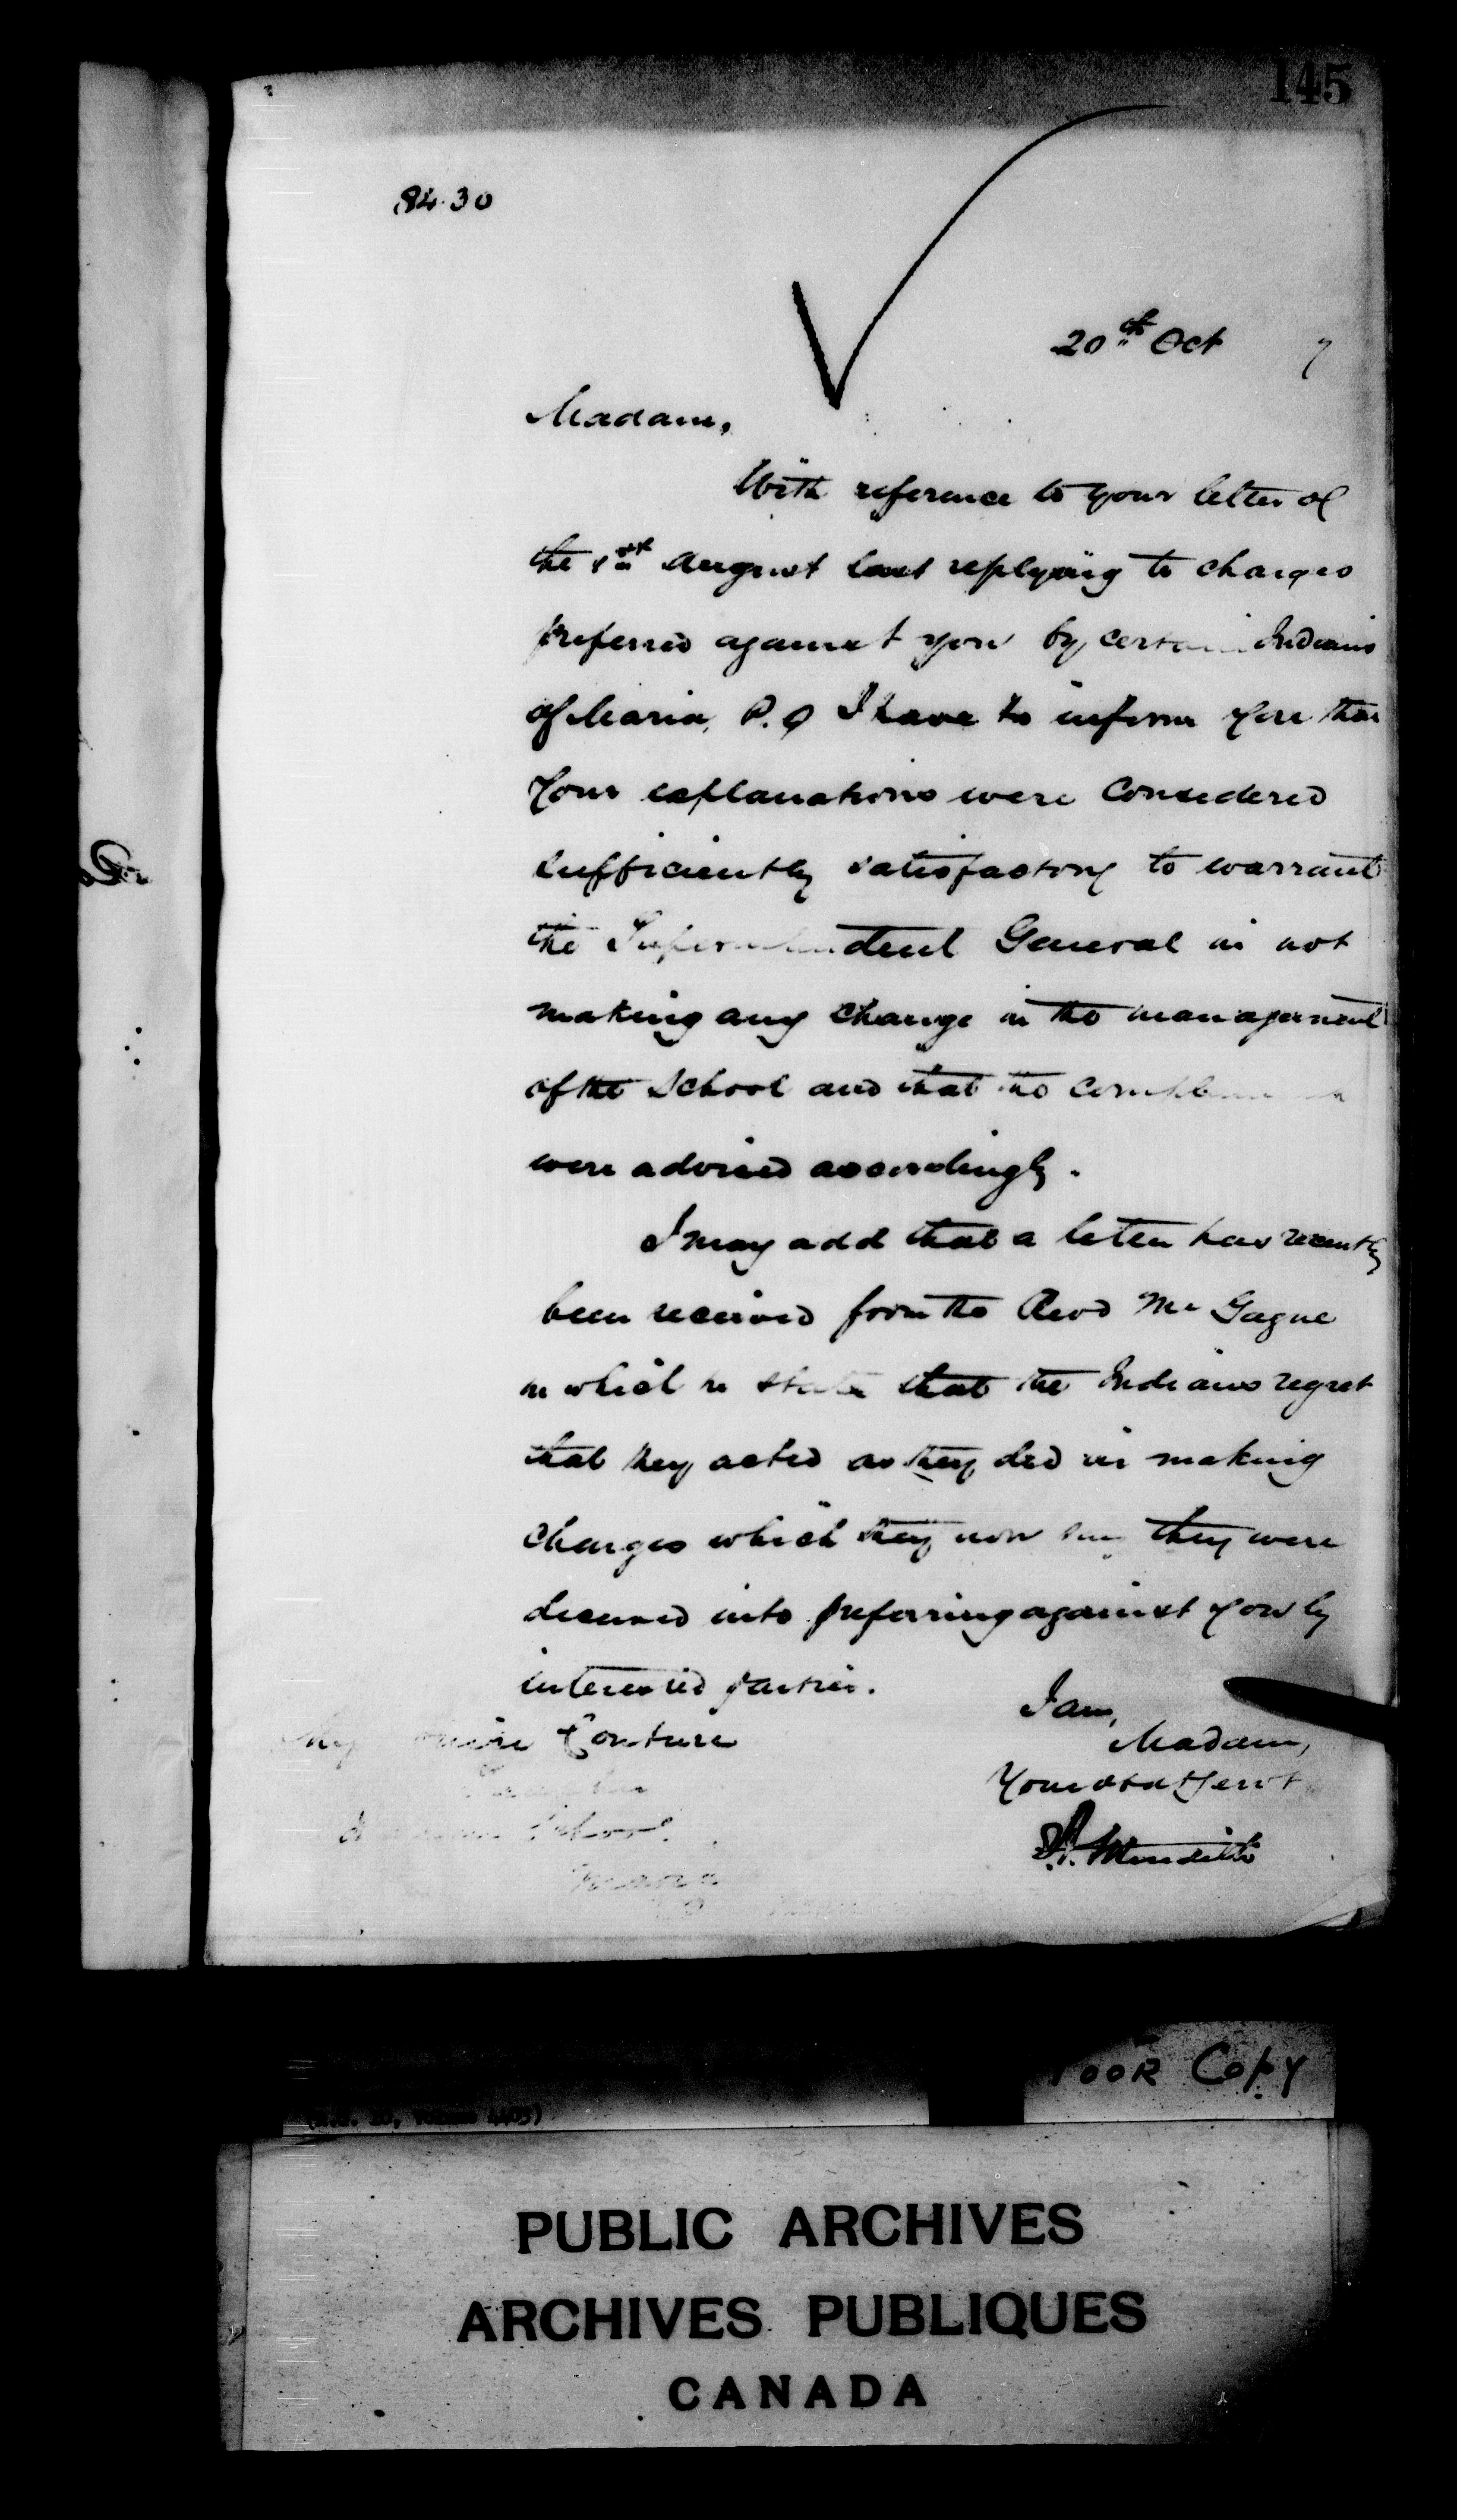 145
8430
20th Oct 7
Madam,
With reference to your letter of
the 1st August last replying to charges
preferred against you by certain Indians
of Maria, P.Q I have to inform you that
your explanations were considered
sufficiently satisfactory to warrant
the Superintendent General in not
making any change in the management
of the School and that the
were advised accordingly.
I may add that a letter has recently
been received from the Revd Mr Gagne
in which he states that the Indians regret
that they acted as they did in making
charges which they now say they were
deceived into preferring against you by
interested parties.
I am,
Madam,
Your obdt Servt
Meredith
Couture
School
Maria
POOR COPY
PUBLIC ARCHIVES
ARCHIVES PUBLIQUES
CANADA